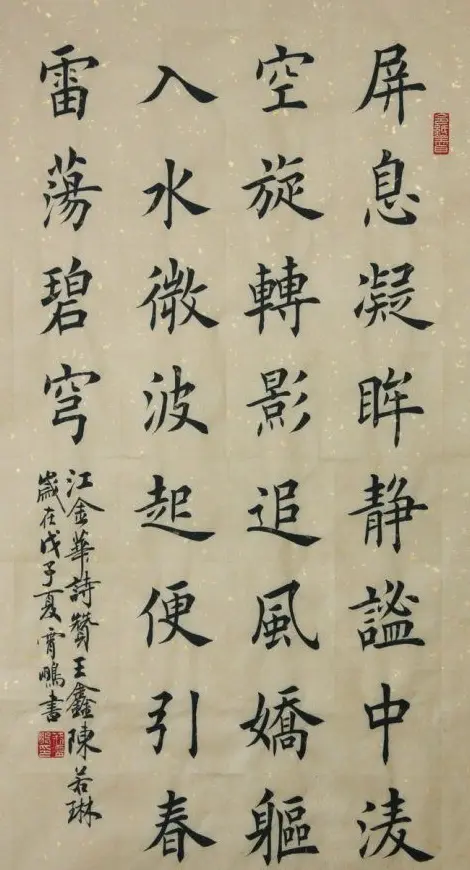 屏息凝眸靜謐中淩
空旋轉影追風嬌軀
入水微波起便引春
雷蕩碧穹
江金華詩贊王鑫陳若琳
歲在戊子夏霄鵬書